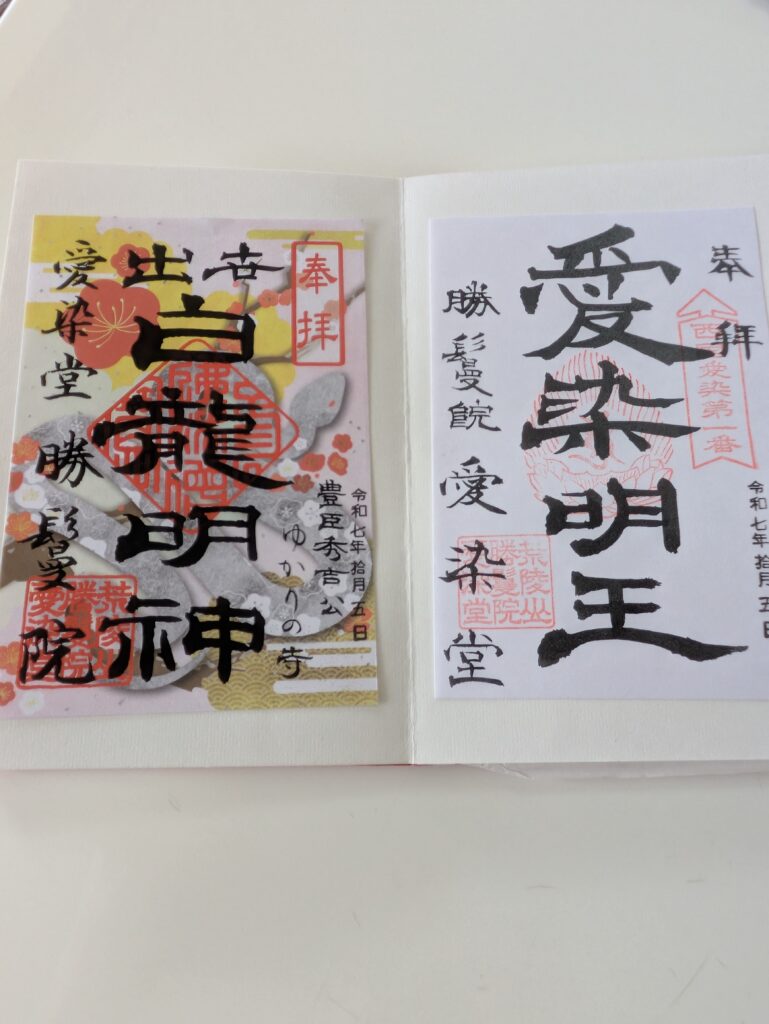 奉拝
西国愛染第一番
令和七年拾月五日
愛染明王
勝鬘院 愛染堂
荒陵山
勝鬘院
愛染堂
奉拝
令和七年拾月五日
豊臣秀吉公
ゆかりの寺
出世
白龍明神
愛染堂 勝鬘院
荒陵山
勝鬘院
愛染堂